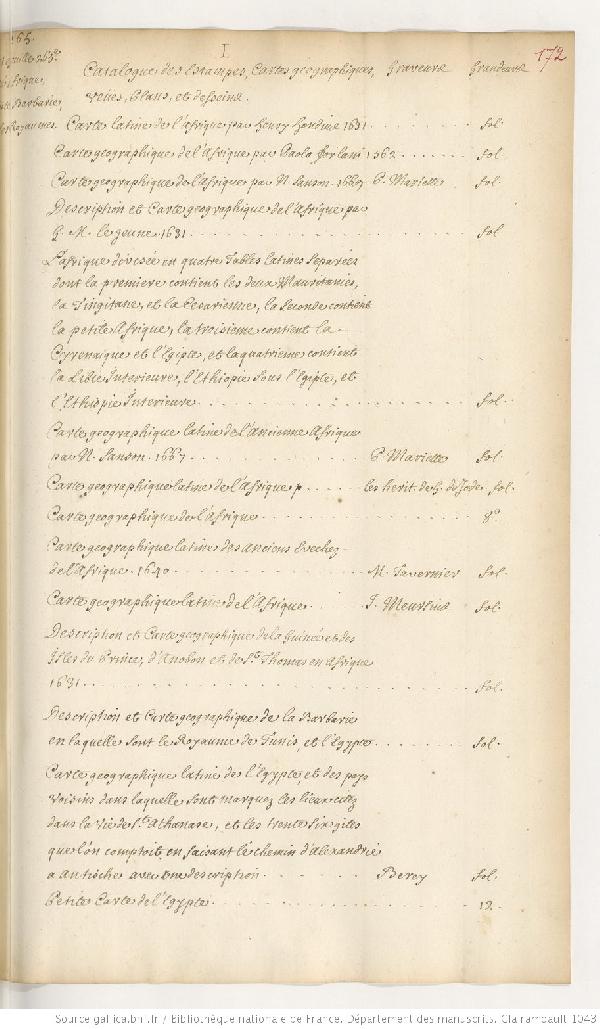 265.
I
172
Catalogue des Estampes, Cartes geographiques, Graveurs Grandeurs
veües, Plans, et desseins.
Carte latine de l'afrique par henry hondius 1631 . . . fol.
Carte geographique de l'Afrique par Paolo forlani 1562 . . . fol.
Carte geographique de l'Afrique par N. Sanson. 1669 P. Mariette fol.
Description et Carte geographique de l'Afrique par
G. M. le jeune 1631 . . . fol
L'afrique divisée en quatre Tables latines separées
dont la premiere contient les deux Mauritanies,
la Tingitane, et la Cesarienne, la Seconde contient
la petite Afrique, la troisieme contient la
Cyrenaique et l'Egipte, et la quatrieme contient
la Libie Interieure, l'Ethiopie sous l'Egipte, et
l'Ethiopie Interieure . . . fol.
Carte geographique latine de l'ancienne Afrique
par N. Sanson. 1667 . . . P. Mariette fol.
Carte geographique latine de l'Afrique p. . . . les herit. de G. de Jode fol.
Carte geographique de l'Afrique . . . 8º
Carte geographique latine des Anciens Evechez
de l'Afrique. 1640 . . . M. Tavernier fol.
Carte geographique latine de l'Afrique . . . J. Meursius fol.
Description et Carte geographique de la Guinée et des
Isles du Prince, d'Anobon et de St. Thomas en Afrique
1631 . . . fol.
Description et Carte geographique de la Barbarie
en laquelle sont le Royaume de Tunis et l'Egypte . . . fol.
Carte geographique latine de l'Egypte, et des pays
voisins dans laquelle sont marquez les lieux citez
dans la vie de St. Athanase, et les trente six gites
que l'on comptoit, en faisant le chemin d'alexandrie
a Antioche avec une description . . . Berey fol.
Petite Carte de l'Egypte . . . 12.
Source gallica.bnf.fr / Bibliothèque nationale de France. Département des manuscrits. Clairambault 1043